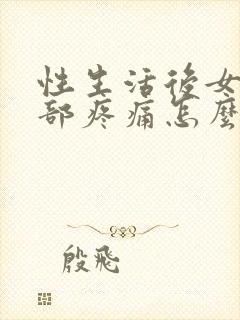 性生活後女
部疼痛怎麼
殷飛